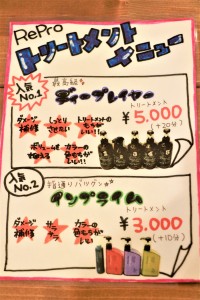 RePro
トリートメント
メニュー
人気
No.1
最高級な
ディープレイヤー
ダメージ
補修
しっとり
させたい
トリートメントの
もちが
いい!!
ボリュームを
抑える
カラーの
色もちが
いい!!
トリートメント
¥5.000
(+20分)
人気
No.2
指通りバツグン
インプライム
ダメージ
補修
サラ
サラ
カラーの
色もちが
いい!
トリートメント
¥3.000
(+10分)